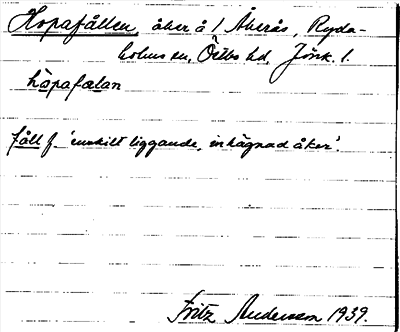 Hopafållen, åker å 1 Åkerås, Ryda-
holms sn, Östbo hd, Jönk. l.
hopafælan
fåll f. 'enskilt liggande, inhägnad åker'.
Fritz Andersson 1939.